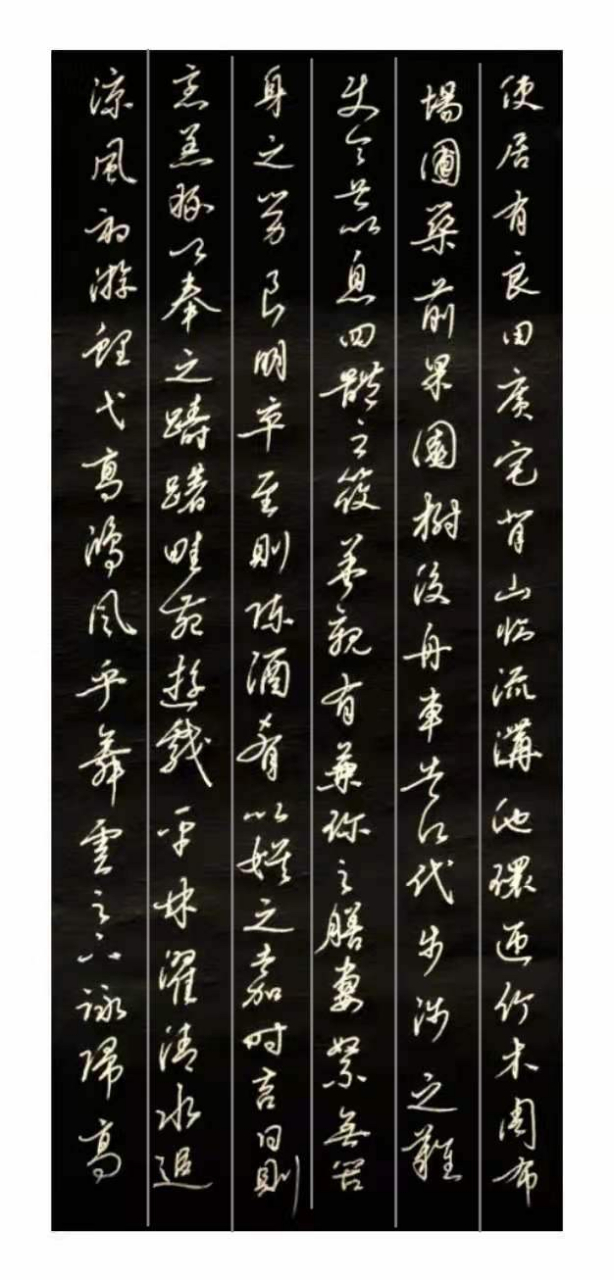 使居有良田廣宅背山臨流溝池環匝竹木周布
場圃築前果園樹後舟車足以代步涉之難
使令足以息四體之役養親有兼珍之膳妻孥無苦
身之勞良朋萃至則陳酒肴以娛之嘉時吉日則
烹羔豚以奉之躊躇畦苑遊戲平林濯清水追
涼風釣游鯉弋高鴻風乎舞雩之下詠歸高